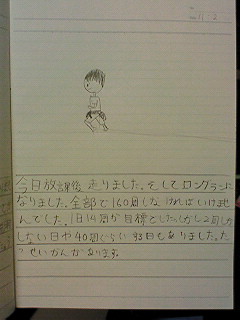 今日放課後走りました。そしてロングランに
なりました。全部で160周しなければいけませ
んでした。1日14周が目標でした。しかし2周しか
しない日や40周ぐらい
日もありました。た
っせいかんがあります。